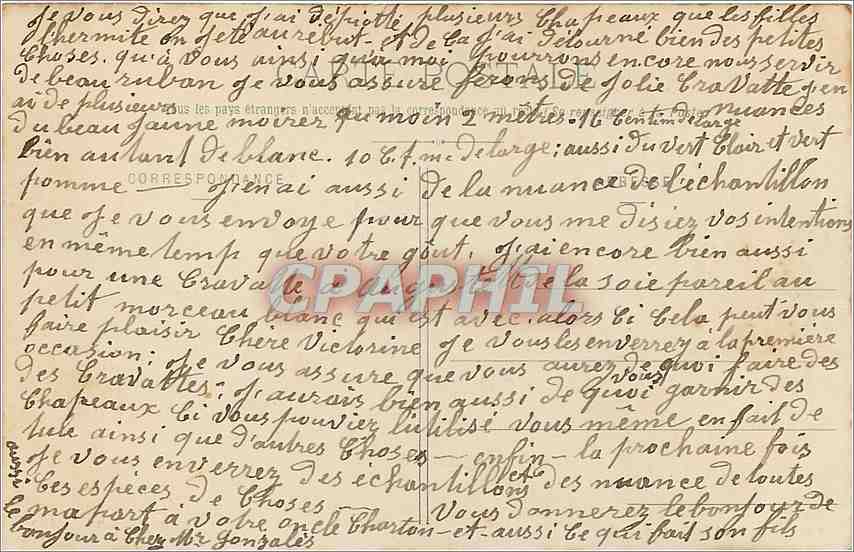 Je vous direz que J'ai dépiotté plusieurs Chapeaux que les filles
Lhermite on Jeté au rebut - et de Ca J'ai Détourné bien des petites
Choses. qu'à vous ainsi qu'à moi pourrons encore nous servir
CARTE POSTALE
de beau ruban Je vous assure ferons de Jolie Cravatte J'en
ai de plusieurs nuances
Tous les pays étrangers n'acceptent pas la correspondance au
du beau Jaune moirez au moin 2 mètre. 16 Centim de large
bien autant de blanc. 10 C.t.m. de large; aussi du vert Clair et vert
CORRESPONDANCE
pomme J'en ai aussi de la nuance de l'échantillon
que Je vous envoye pour que vous me disiez vos intentions
en même temp que votre goût. J'ai encore bien aussi
pour une Cravatte a de la soie pareil au
CPAPHIL
petit morceau blanc qui est avec. alors Ci Cela peut vous
faire plaisir Chère Victorine Je vous les enverrez à la première
occasion; Je vous assure que vous aurez de quoi faire des
des Cravattes; J'aurais bien aussi de quoi vous garnir des
Chapeaux Ci vous pouviez l'utilisé vous même en fait de
tue ainsi que d'autres Choses - enfin - la prochaine fois
Je vous enverrez des échantillons et des nuance de toutes
aussi
Ces espèces de Choses - Vous donnerez le bonjour de
ma part à votre oncle Charton - et - aussi Ce qui fait son fils
le bonjour à Chez Mr Gonzalès